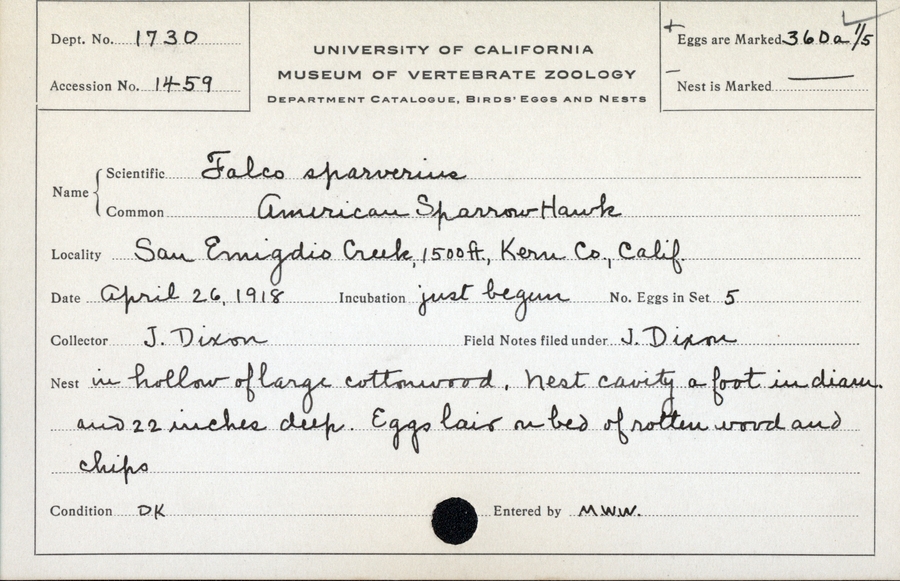 Dept. No. 1730
Accession No. 1459
UNIVERSITY OF CALIFORNIA
MUSEUM OF VERTEBRATE ZOOLOGY
DEPARTMENT CATALOGUE, BIRDS' EGGS AND NESTS
+ Eggs are Marked 360a 1/5
— Nest is Marked —
Name { Scientific Falco sparverius
Common American Sparrow Hawk
Locality San Emigdio Creek, 1500 ft., Kern Co., Calif.
Date April 26, 1918 Incubation just begun No. Eggs in Set 5
Collector J. Dixon Field Notes filed under J. Dixon
Nest in hollow of large cottonwood. Nest cavity a foot in diam.
and 22 inches deep. Eggs laid on bed of rotten wood and
chips
Condition DK Entered by M.W.W.